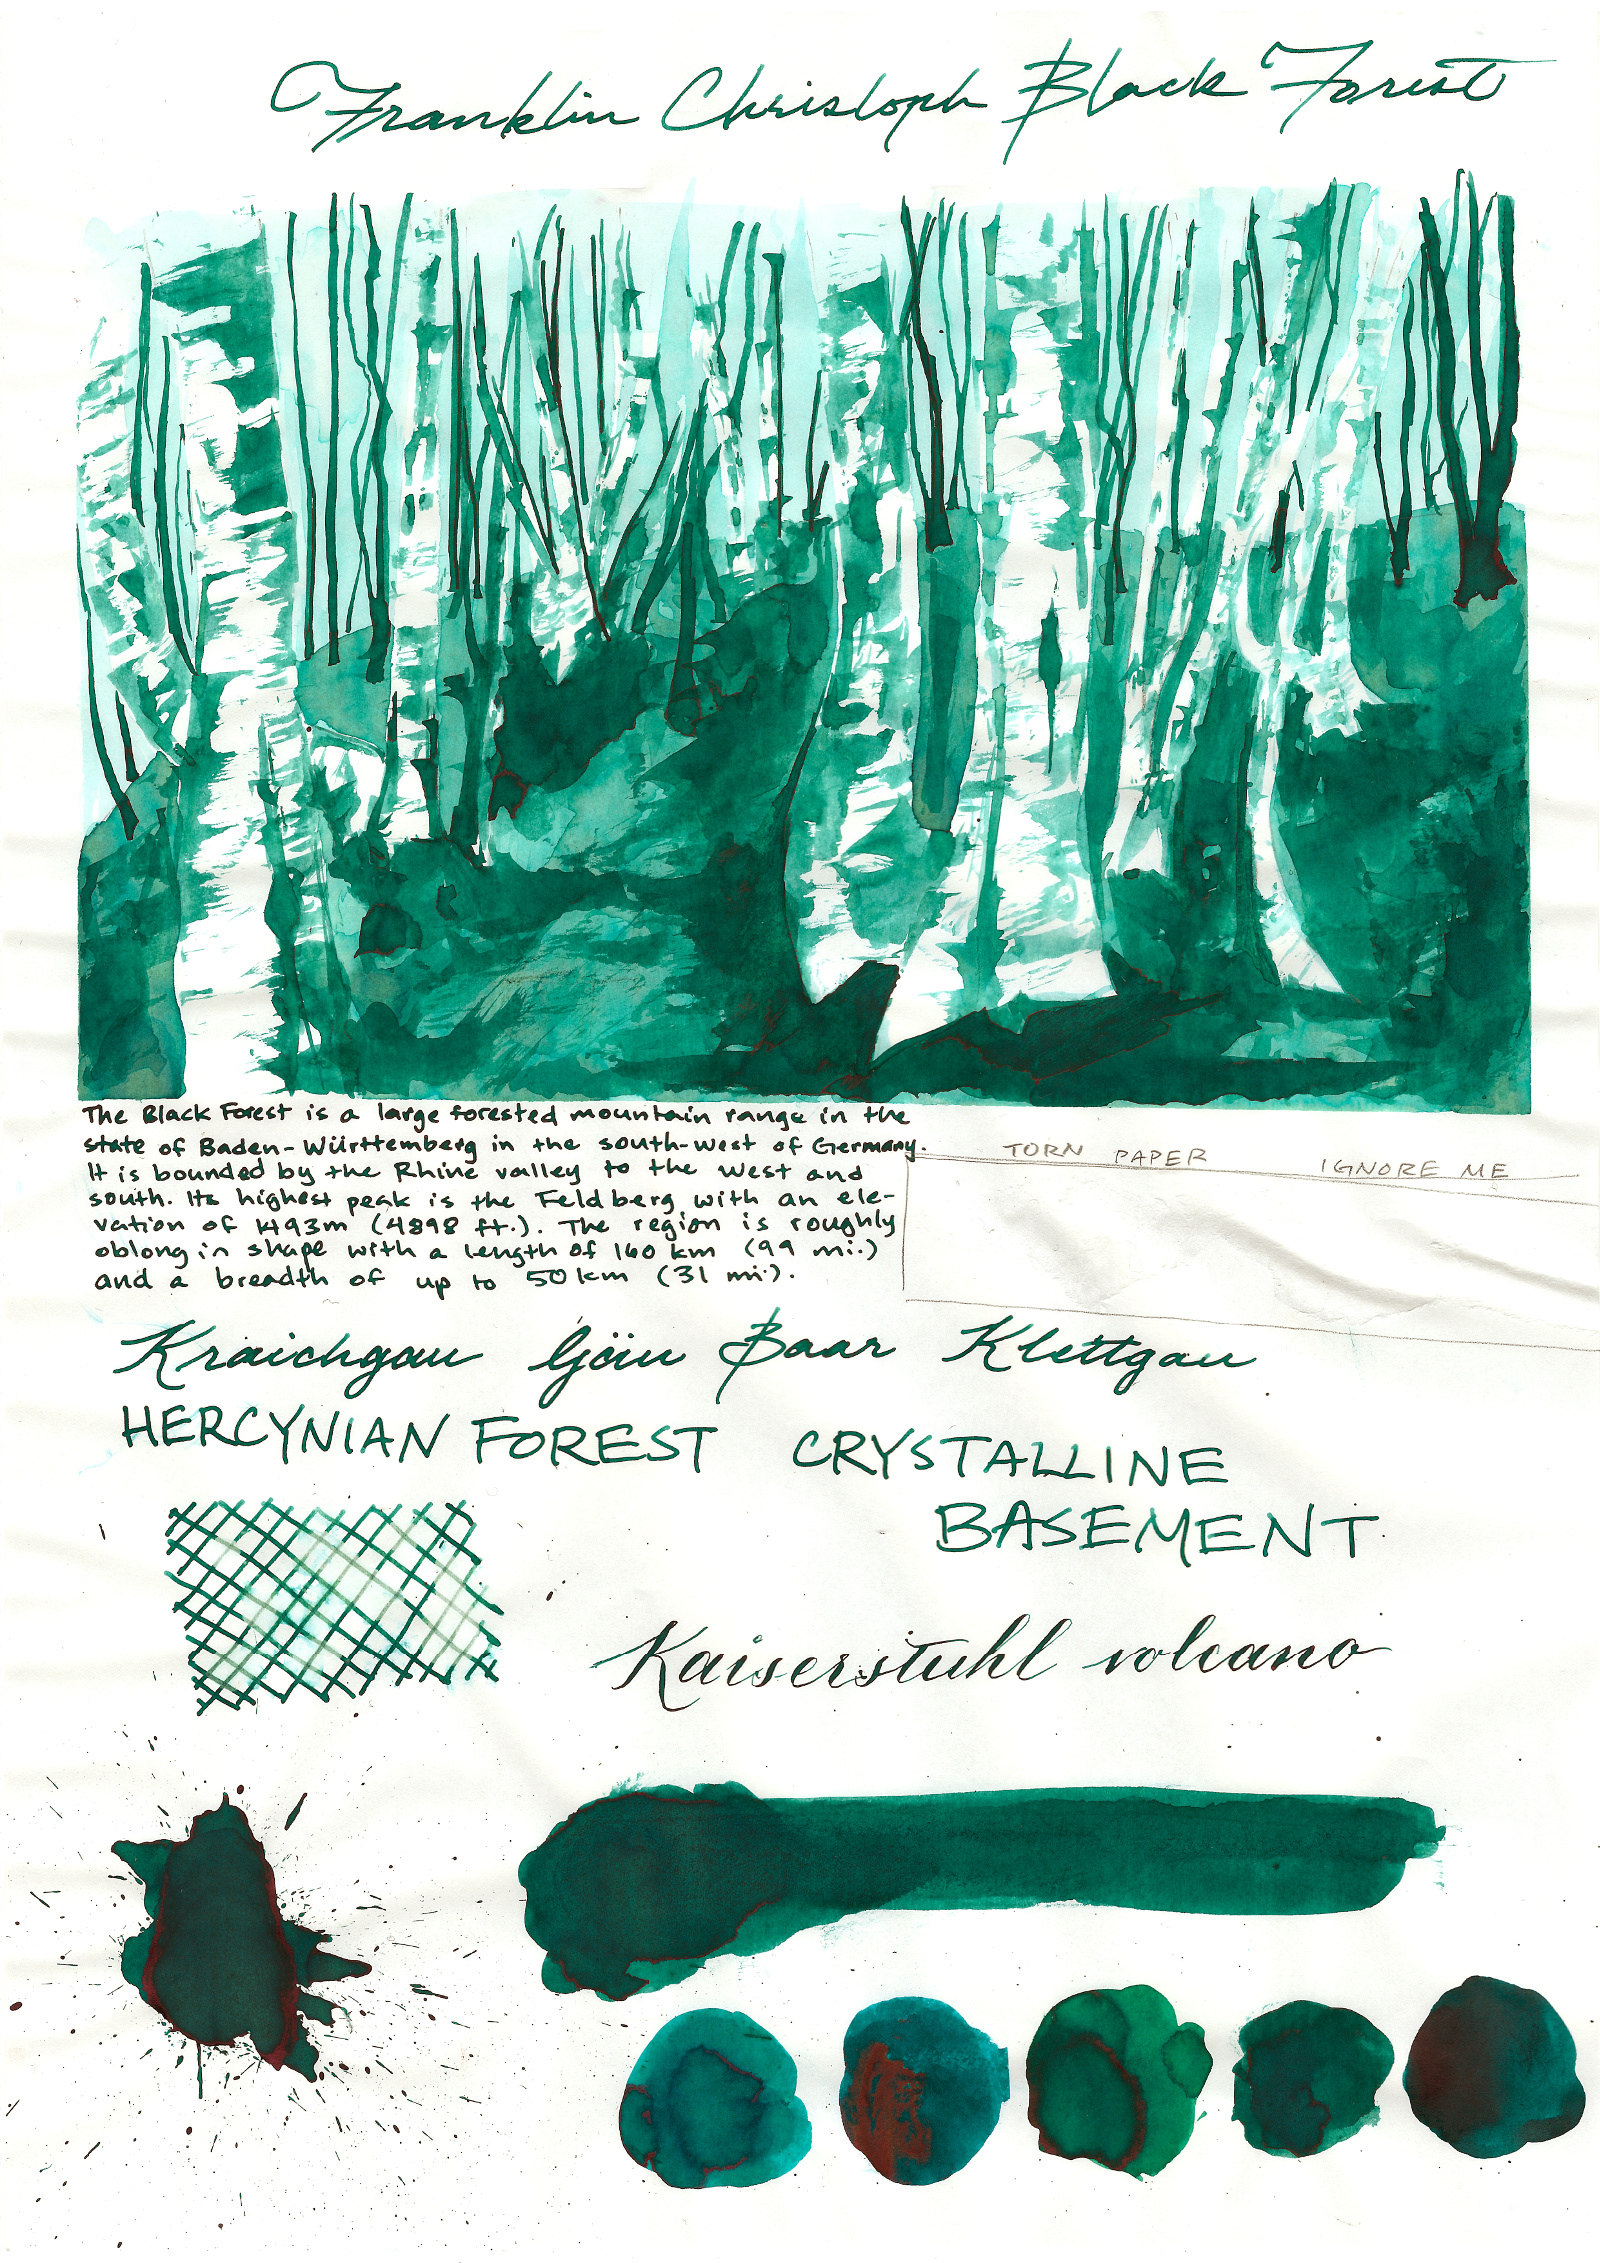 Franklin Christoph Black Forest
The Black Forest is a large forested mountain range in the
state of Baden-Württemberg in the south-west of Germany.
It is bounded by the Rhine valley to the west and
south. Its highest peak is the Feldberg with an ele-
vation of 1493m (4898 ft.). The region is roughly
oblong in shape with a length of 160 km (99 mi.)
and a breadth of up to 50km (31 mi.).
TORN PAPER IGNORE ME
Kraichgau Baar Klettgau
HERCYNIAN FOREST CRYSTALLINE
BASEMENT
Kaiserstuhl volcano